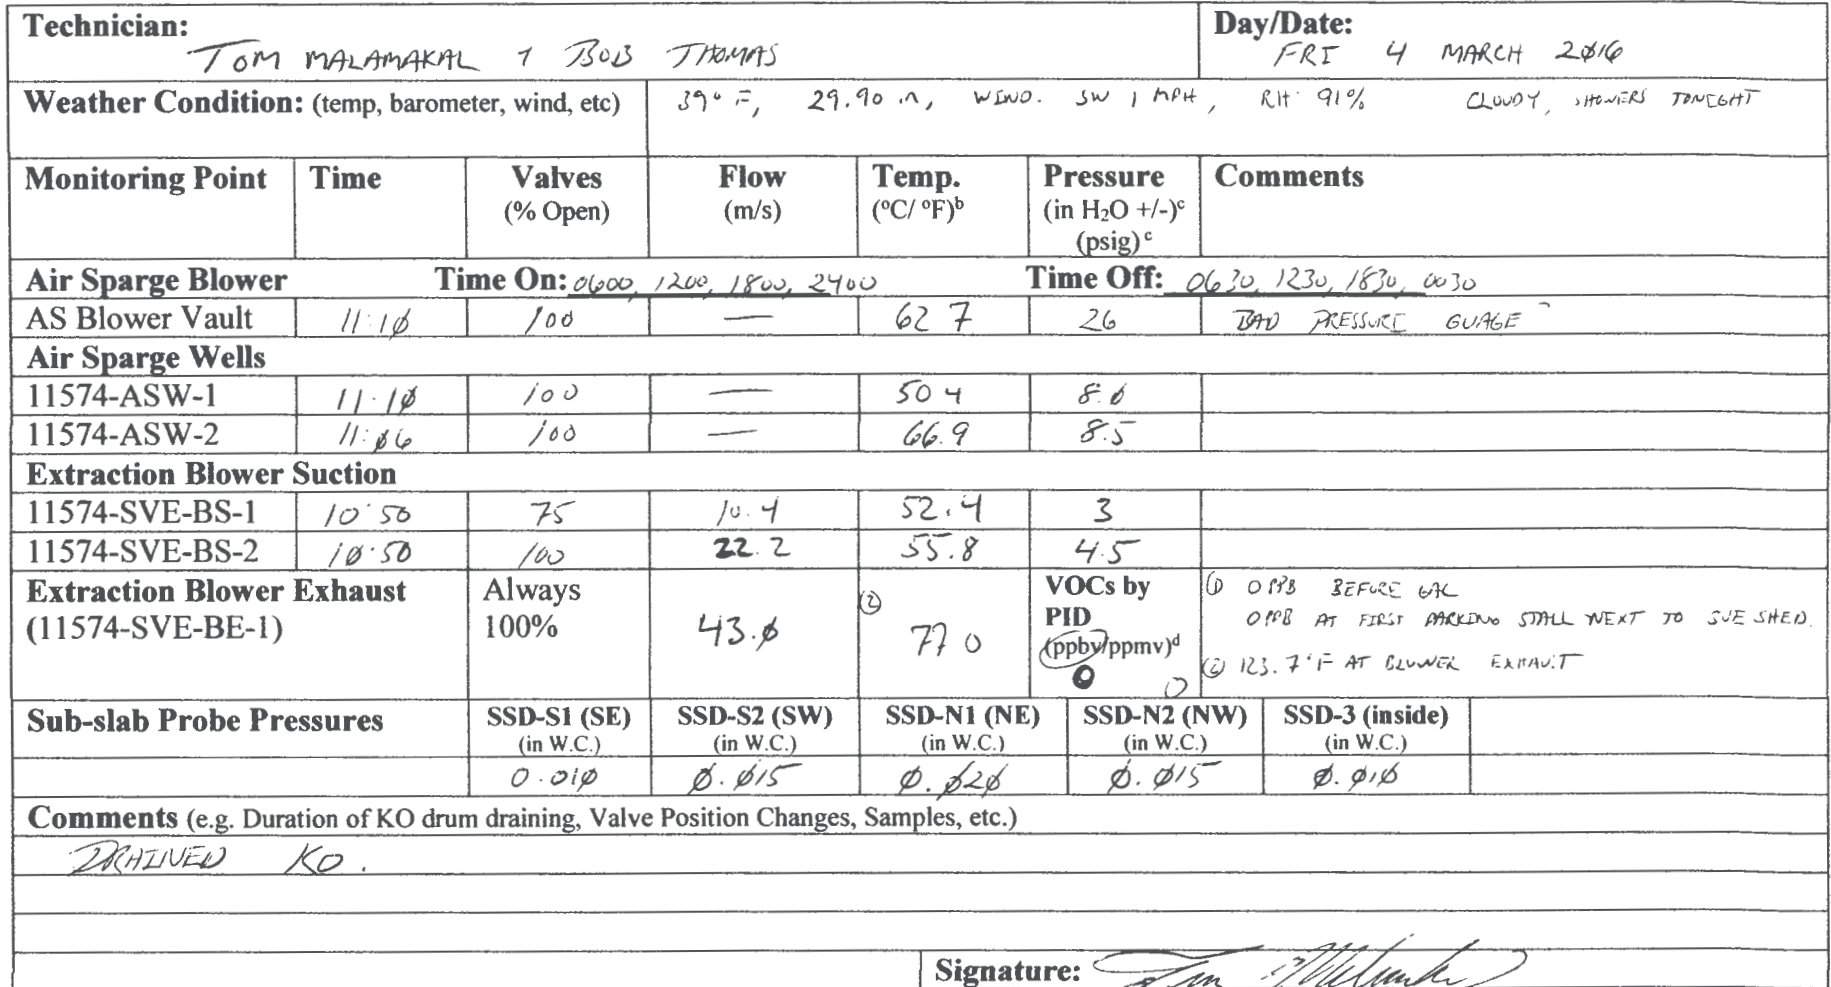 Technician: Day/Date:
TOM MALAMAKAL & BOB THOMAS FRI 4 MARCH 2016
Weather Condition: (temp, barometer, wind, etc) 39° F, 29.90 in, WIND: SW 1 MPH, RH: 91% CLOUDY, SHOWERS TONIGHT
Monitoring Point Time Valves Flow Temp. Pressure Comments
(% Open) (m/s) (°C/ °F)b (in H2O +/-)c
(psig) c
Air Sparge Blower Time On: 0600, 1200, 1800, 2400 Time Off: 0630, 1230, 1830, 0030
AS Blower Vault 11:10 100 — 62.7 26 BAD PRESSURE GUAGE
Air Sparge Wells
11574-ASW-1 11:10 100 — 50.4 8.0
11574-ASW-2 11:06 100 — 66.9 8.5
Extraction Blower Suction
11574-SVE-BS-1 10:50 75 10.4 52.4 3
11574-SVE-BS-2 10:50 100 22.2 55.8 4.5
Extraction Blower Exhaust Always VOCs by ① 0 PPB BEFORE GAC
(11574-SVE-BE-1) 100% 43.0 ② 77.0 PID 0 PPB AT FIRST PARKING STALL NEXT TO SVE SHED.
(ppbv/ppmv)d ② 123.7°F AT BLOWER EXHAUST
0
Sub-slab Probe Pressures SSD-S1 (SE) SSD-S2 (SW) SSD-N1 (NE) SSD-N2 (NW) SSD-3 (inside)
(in W.C.) (in W.C.) (in W.C.) (in W.C.) (in W.C.)
0.010 0.015 0.020 0.015 0.010
Comments (e.g. Duration of KO drum draining, Valve Position Changes, Samples, etc.)
DRAINED KO.
Signature: